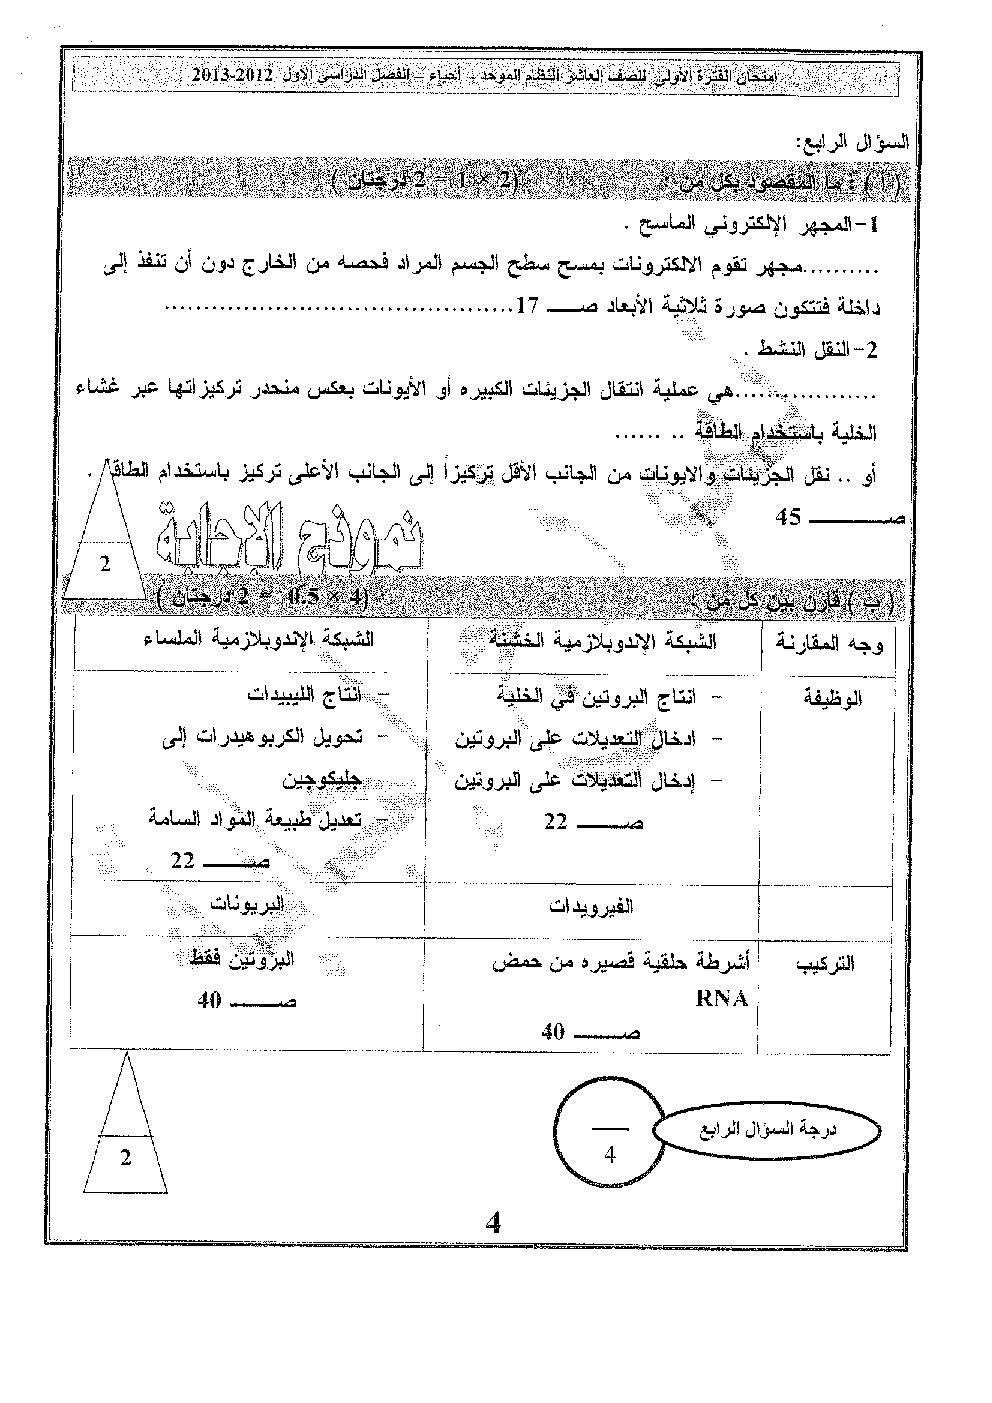 امتحان الفترة الأولى للصف العاشر النظام الموحد - أحياء - الفصل الدراسي الأول 2012-2013
السؤال الرابع:
( أ ) : ما المقصود بكل من : (2 × 1 = 2 درجتان )
1-المجهر الإلكتروني الماسح .
..........مجهر تقوم الالكترونات بمسح سطح الجسم المراد فحصه من الخارج دون أن تنفذ إلى
داخلة فتتكون صورة ثلاثية الأبعاد صـــ 17..........................................
2-النقل النشط .
..................هي عملية انتقال الجزيئات الكبيره أو الأيونات بعكس منحدر تركيزاتها عبر غشاء
الخلية باستخدام الطاقة .. ......
أو .. نقل الجزيئات والايونات من الجانب الأقل تركيزاً إلى الجانب الأعلى تركيز باستخدام الطاقة .
صـــــــ 45
نموذج الإجابة
2
( ب ) قارن بين كل من : (4 × 0.5 = 2 درجتان )
وجه المقارنة الشبكة الإندوبلازمية الخشنة الشبكة الإندوبلازمية الملساء
الوظيفة
- انتاج البروتين في الخلية
- ادخال التعديلات على البروتين
- إدخال التعديلات على البروتين
صـــــ 22
- انتاج الليبيدات
- تحويل الكربوهيدرات إلى
جليكوجين
- تعديل طبيعة المواد السامة
صـــــ 22
الفيرويدات البريونات
التركيب
أشرطة حلقية قصيره من حمض
RNA
صـــــ 40
البروتين فقط
صـــــ 40
درجة السؤال الرابع
4
2
4